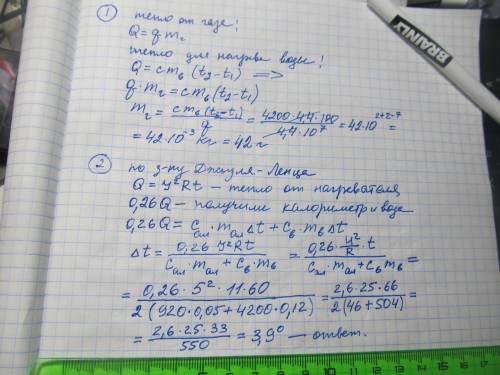 1 тепло от газа!
Q = q m₂
тепло для нагрева воды!
Q = cmв (t₂ - t₁) =>
q·m₂ = cmв (t₂ - t₁)
m₂ = cmв (t₂ - t₁) / q = 4200·4,4·100 / 4,4·10⁷ = 42·10²⁺²⁻⁷ =
= 42·10⁻³ кг = 42 г
2 по з-ну Джоуля-Ленца
Q = У²Rt — тепло от нагревателя
0,26Q — получили калориметр и вода
0,26Q = Cал·mал Δt + Cв·mв Δt
Δt = 0,26·У²Rt / Cал·mал + Cв·mв = 0,26·У²/R·t / Cал·mал + Cв mв =
= 0,26·5²·11·60 / 2(920·0,05 + 4200·0,12) = 2,6·25·66 / 2(46 + 504) =
= 2,6·25·33 / 550 = 3,9° — ответ.
BRAINLY
1 2 3 4 5 6 7 8 9 10 11 12 13 14 15 16 17